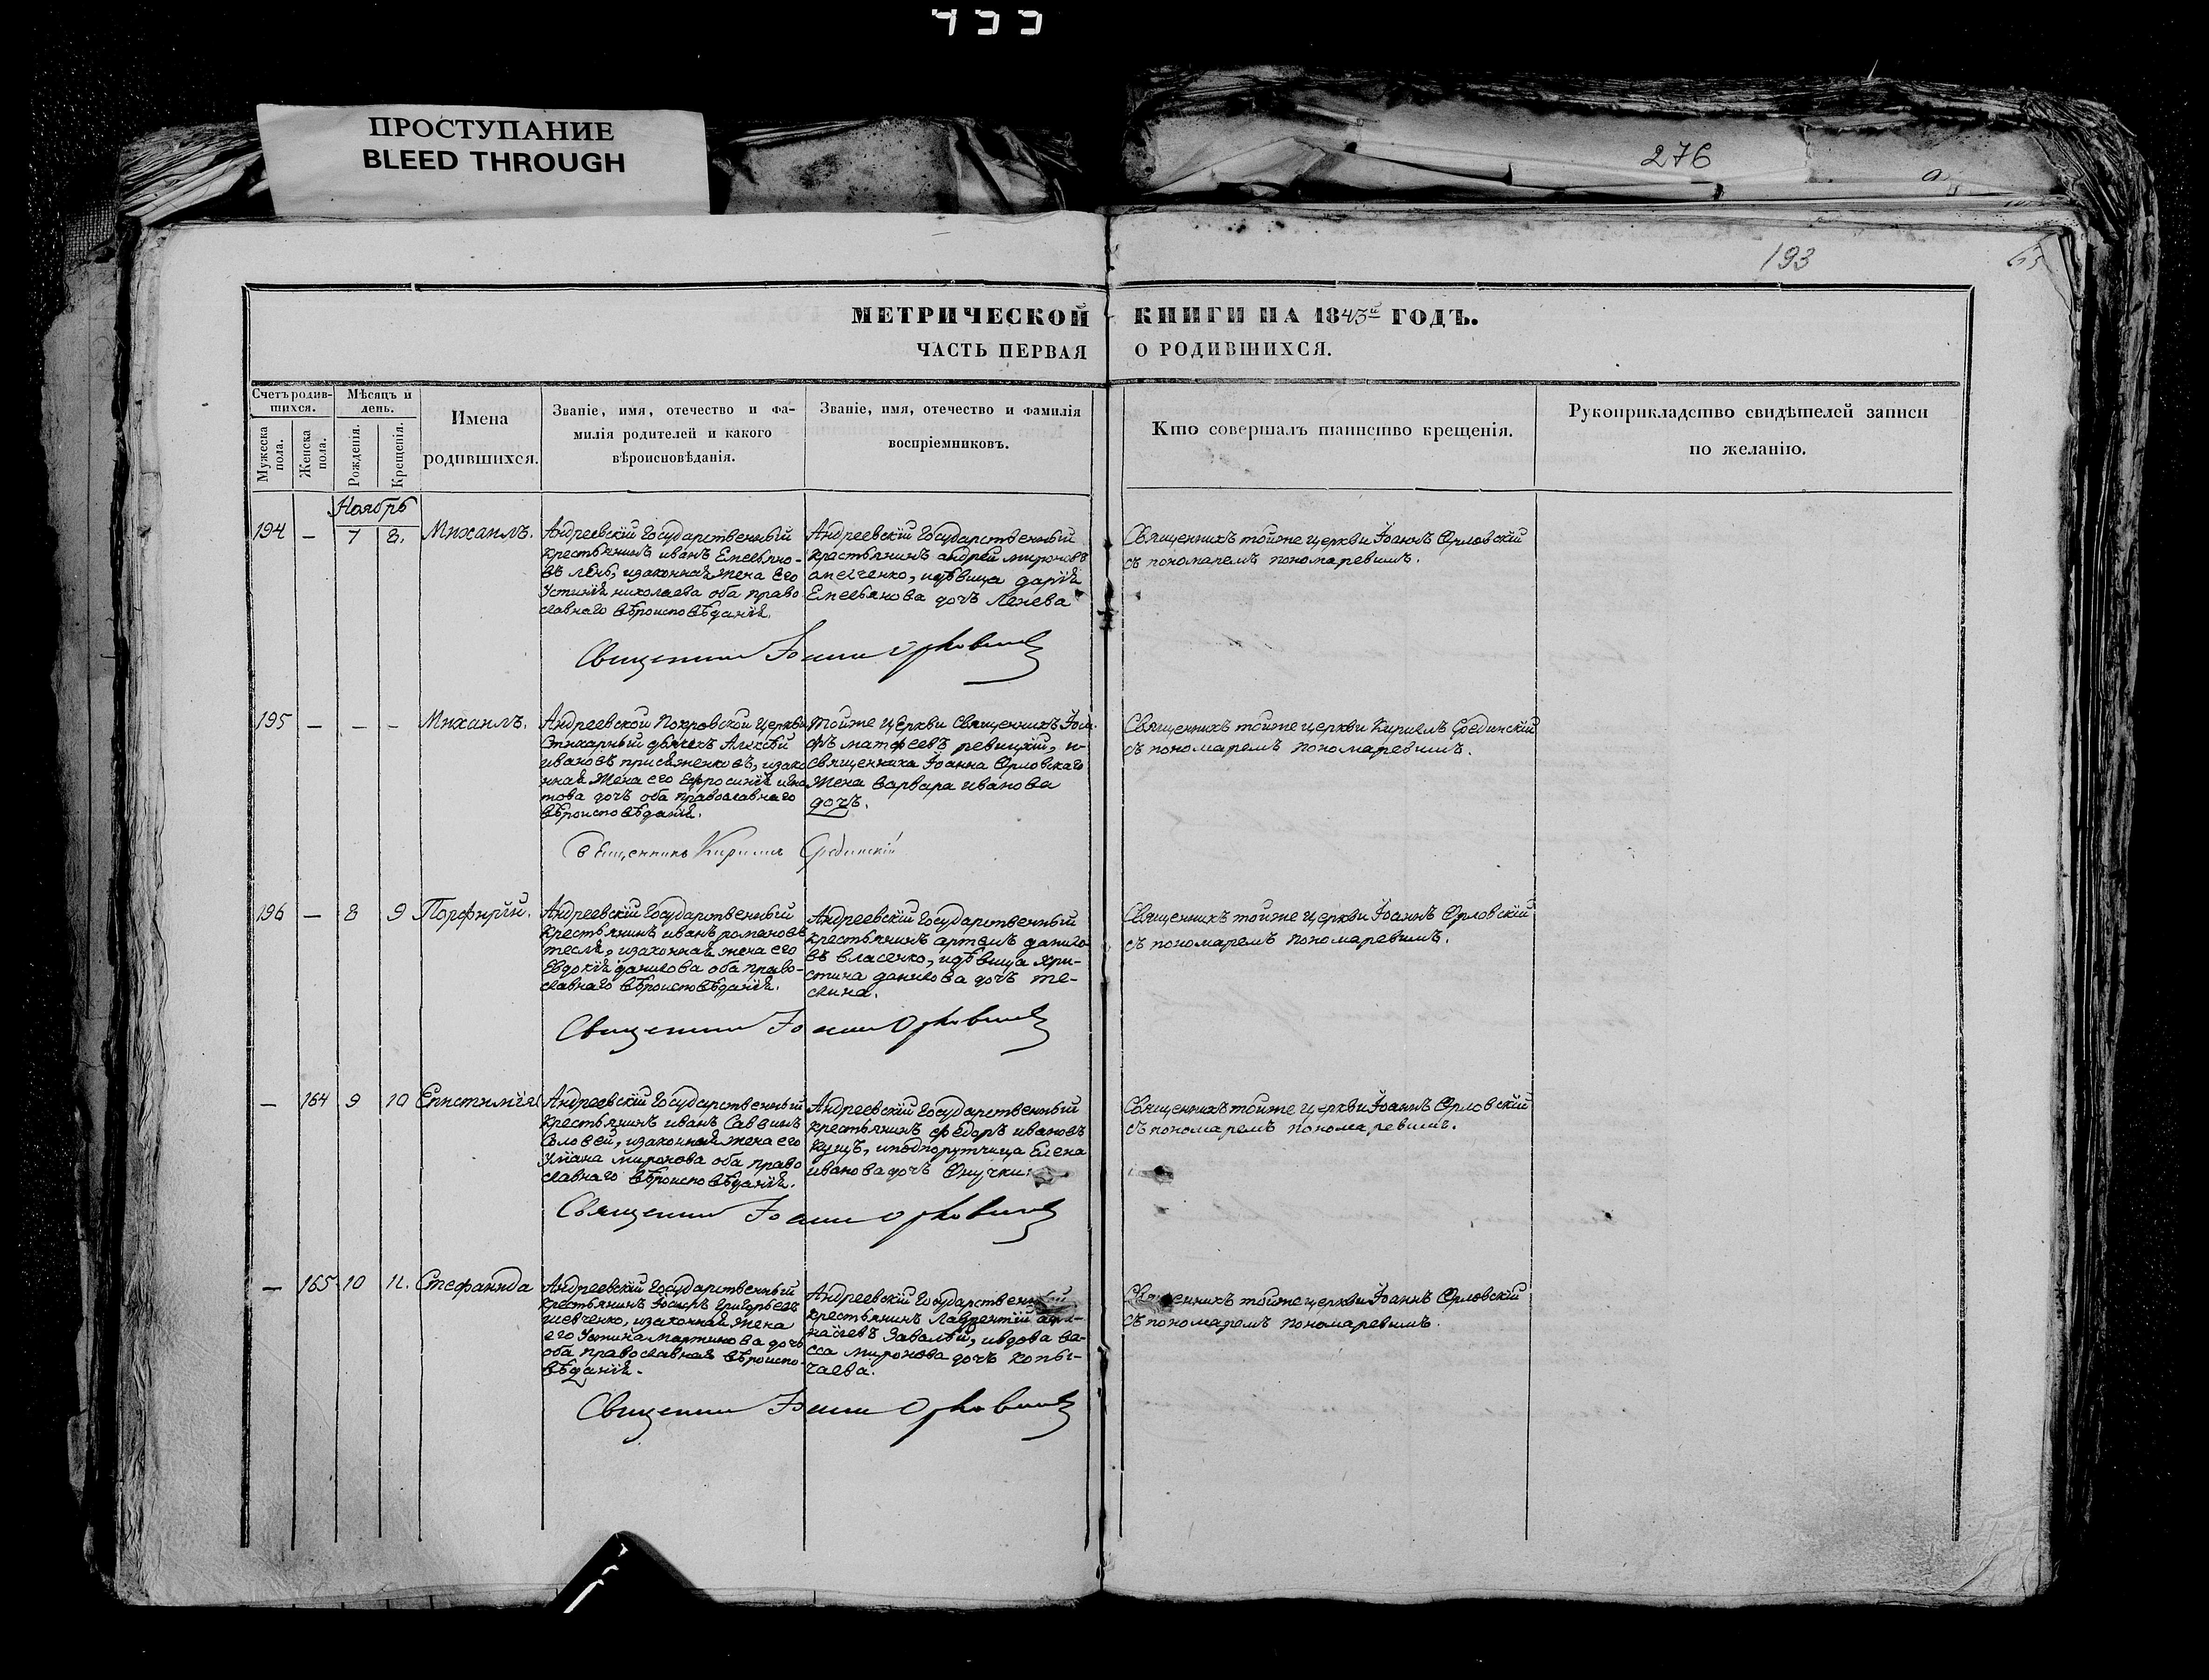 433
ПРОСТУПАНИЕ
BLEED THROUGH
276
193
МЕТРИЧЕСКОЙ КНИГИ НА 1843й ГОДЪ.
ЧАСТЬ ПЕРВАЯ О РОДИВШИХСЯ.
Счетъ родившихся.
Мужеска пола.
Женска пола.
Мѣсяцъ и день.
Рожденія.
Крещенія.
Имена
родившихся.
Званіе, имя, отечество и фа-
милія родителей и какого
вѣроисповѣданія.
Званіе, имя, отечество и фамилія
воспріемниковъ.
Кто совершалъ таинство крещенія.
Рукоприкладство свидѣтелей записи
по желанію.
Ноябрь
194 — 7 8. Михаилъ.
Андреевскій Государственный
крестьянинъ иванъ Емельяно-
въ лень, изаконная жена Его
Устинія николаева оба право
славнаго вѣроисповѣданія.
Андреевскій Государственный
крестьянинъ андрей мироновъ
омельченко, идѣвица дарія
Емельянова дочъ Ленева
Священникъ тойже церкви Іоаннъ Орловскій
съ пономаремъ пономаревимъ.
Священник Іоанн Орловский
195 — — — Михаилъ.
Андреевской Покровской Церкви
Стихарный дьячекъ Алексѣй
ивановъ присяженковъ, изако
нная Жена его Ефросинія
това дочъ оба православнаго
вѣроисповѣданія.
Тойже цЕркви Священникъ Іоси
фъ матфеевъ ревицкій, и
священника Іоанна Орловскаго
Жена варвара иванова
дочъ.
Священникъ тойже церкви Кирилъ Срединскій
съ пономаремъ пономаревимъ.
Священникъ Кирилъ Срединскій
196 — 8 9 Порфирій.
Андреевскій Государственный
крестьянинъ иванъ романовъ
тесля, изаконная жена его
Евдокія данилова оба право-
славнаго вѣроисповѣданія.
Андреевскій Государственный
крестьянинъ артемъ данило
въ власенко, идѣвица хри-
стина данилова дочъ те-
слина.
Священникъ тойже церкви Іоаннъ Орловскій
съ пономаремъ пономаревимъ.
Священник Іоанн Орловский
— 164 9 10 Епистимія
Андреевскій Государственный
крестьянинъ иванъ Саввинъ
Соловей, изаконная жена его
Уліана миронова оба право
славнаго вѣроисповѣданія.
Андреевскій Государственный
крестьянинъ федоръ ивановъ
Куцъ, иподпорутчица Елена
иванова дочъ
Священникъ тойже церкви Іоаннъ Орловскій
съ пономаремъ пономаревимъ.
Священник Іоанн Орловский
— 165 10 11. Стефанида
Андреевскій Государственный
крестьянинъ Іосифъ Григорьевъ
шевченко, изаконная жена
его Устина мартинова дочъ
оба православнаго вѣроиспо-
вѣданія.
Андреевскій Государственный
крестьянинъ Лаврентій афа-
насіевъ Завалѣй, ивдова ва-
сса миронова дочъ копы-
таева.
Священникъ тойже церкви Іоаннъ Орловскій
съ пономаремъ пономаревимъ.
Священник Іоанн Орловский